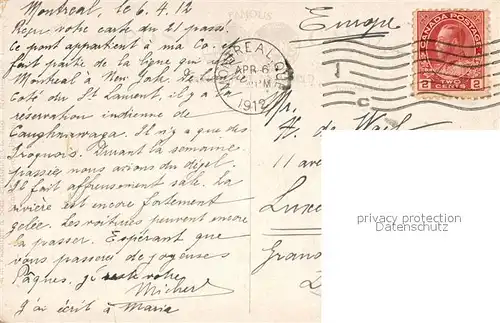 Montreal, le 6.4.12
Reçu votre carte du 21 passé.
Ce pont appartient à ma Co. et
fait partie de la ligne qui va
Montreal à New York. De
Coté du St Laurent, il y a
reservation indienne de
Caughnawaga. Il y a que des
Iroquois. Durant la semaine
passée nous avions du dégel.
Il fait affreusement sale. La
rivière est encore fortement
gelée. Les voitures peuvent encore
la passer. Espérant que
vous passerez de joyeuses
Pâques, je reste votre
Michel
J'ai écrit à Maria
FAMOUS
MONTREAL, QUE
APR 6
PM
1912
Europe
CANADA POSTAGE
2 2
TWO CENTS
Mr.
H. de
11 ave
Luxe
Grans
privacy protection
Datenschutz